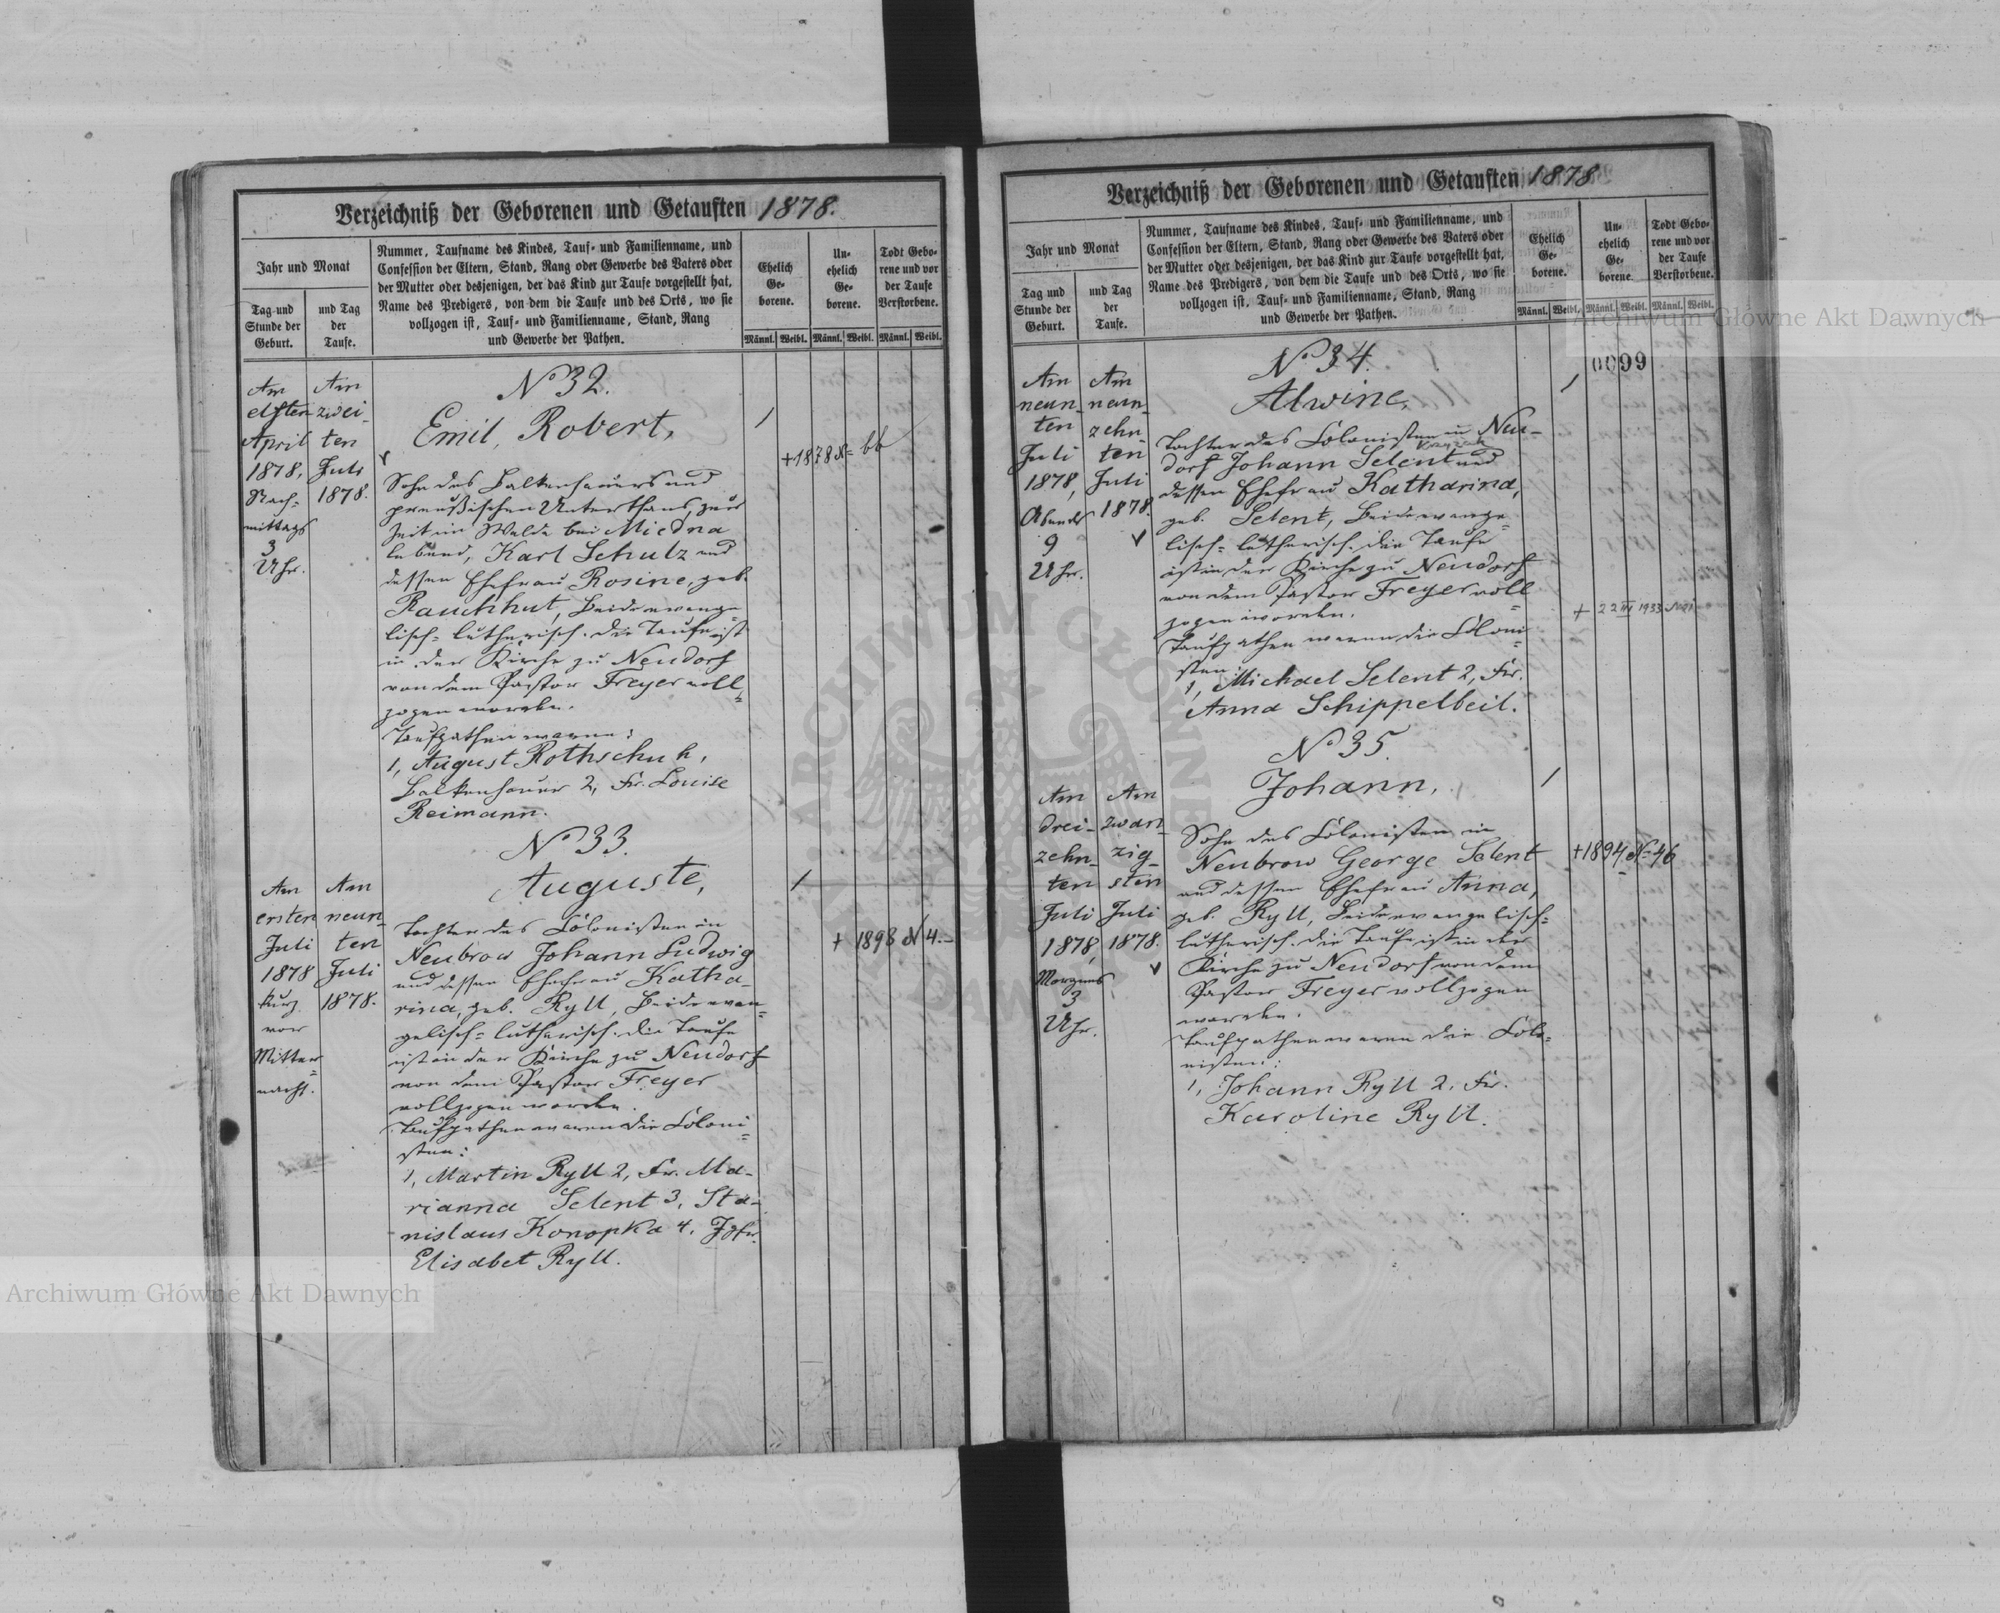 Verzeichniß der Geborenen und Getauften 1878.
Jahr und Monat
Tag und Stunde der Geburt.
und Tag der Taufe.
Nummer, Taufname des Kindes, Tauf- und Familienname, und
Confession der Eltern, Stand, Rang oder Gewerbe des Vaters oder
der Mutter oder desjenigen, der das Kind zur Taufe vorgestellt hat,
Name des Predigers, von dem die Taufe und des Orts, wo sie
vollzogen ist, Tauf- und Familienname, Stand, Rang
und Gewerbe der Pathen.
Ehelich Ge-borene.
Un-ehelich Ge-borene.
Todt Gebo-rene und vor der Taufe Verstorbene.
Männl. Weibl. Männl. Weibl. Männl. Weibl.
Am
elften
April
1878,
Nach-
mittags
3
Uhr.
Am
zwei-
ten
Juli
1878.
No 32.
Emil, Robert,
Sohn des Balkenhauers und
preußischen Unterthans, zur
Zeit im Walde bei Miedna
lebend, Karl Schulz und
dessen Ehefrau Rosine, geb.
Rauchhut, Beide evange-
lisch-lutherisch. Die Taufe ist
in der Kirche zu Neudorf
von dem Pastor Freyer voll-
zogen worden.
Taufpathen waren:
1, August Rothschuh,
Balkenhauer 2, Fr. Louise
Reimann.
+1878 No 66
Am
ersten
Juli
1878
kurz
vor
Mitter-
nacht.
Am
neun-
ten
Juli
1878.
No 33.
Auguste,
Tochter des Colonisten in
Neubrow Johann Ludwig
und dessen Ehefrau Katha-
rina, geb. Ryll, Beide evan-
gelisch-lutherisch. Die Taufe
ist in der Kirche zu Neudorf
von dem Pastor Freyer
vollzogen worden.
Taufpathen waren die Coloni-
sten:
1, Martin Ryll 2, Fr. Ma-
rianna Selent 3, Sta-
nislaus Konopka 4, Jgfr.
Elisabet Ryll.
+ 1898 N 4.
Verzeichniß der Geborenen und Getauften 1878
Jahr und Monat
Tag und Stunde der Geburt.
und Tag der Taufe.
Nummer, Taufname des Kindes, Tauf- und Familienname, und
Confession der Eltern, Stand, Rang oder Gewerbe des Vaters oder
der Mutter oder desjenigen, der das Kind zur Taufe vorgestellt hat,
Name des Predigers, von dem die Taufe und des Orts, wo sie
vollzogen ist, Tauf- und Familienname, Stand, Rang
und Gewerbe der Pathen.
Ehelich Ge-borene.
Un-ehelich Ge-borene.
Todt Gebo-rene und vor der Taufe Verstorbene.
Männl. Weibl. Männl. Weibl. Männl. Weibl.
0099
Am
neun-
ten
Juli
1878,
Abends
9
Uhr.
Am
neun-
zehn-
ten
Juli
1878.
No 34.
Alwine,
Tochter des Colonisten in Neu-
dorf Johann Selent und
dessen Ehefrau Katharina,
geb. Selent, Beide evange-
lisch-lutherisch. Die Taufe
ist in der Kirche zu Neudorf
von dem Pastor Freyer voll-
zogen worden.
Taufpathen waren die Coloni-
sten:
1, Michael Selent 2, Fr.
Anna Schippelbeil.
+ 22 III 1933 No 21
Am
drei-
zehn-
ten
Juli
1878,
Morgens
3
Uhr.
Am
zwan-
zig-
sten
Juli
1878.
No 35.
Johann,
Sohn des Colonisten in
Neubrow George Selent
und dessen Ehefrau Anna,
geb. Ryll, Beide evangelisch-
lutherisch. Die Taufe ist in der
Kirche zu Neudorf von dem
Pastor Freyer vollzogen
worden.
Taufpathen waren die Colo-
nisten:
1, Johann Ryll 2, Fr.
Karoline Ryll.
+1894 No 46
Archiwum Główne Akt Dawnych
Archiwum Główne Akt Dawnych
ARCHIWUM GŁÓWNE